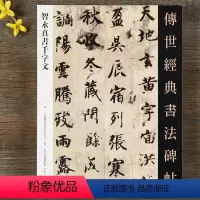 傳世經典書法碑帖
天地玄黃宇宙洪
盈昃辰宿列張寒
秋收冬藏閏餘成
調陽雲騰致雨露
智永真書千字文